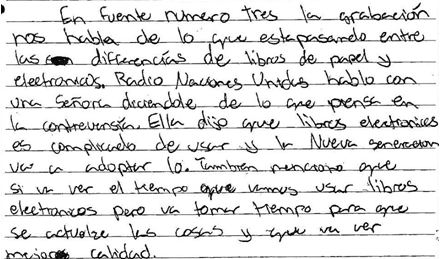 En fuente numero tres la grabación
nos habla de lo que esta pasando entre
las diferencias de libros de papel y
electronicos. Radio Naciones Unidas hablo con
una señora diciendole de lo que piensa en
la contreversia. Ella dijo que libros electronicos
es complicado de usar y la Nueva generacion
va a adoptar lo. Tambien menciono que
si va ver el tiempo que vamos usar libros
electronicos pero va tomar tiempo para que
se actualze las cosas y que va ver
mejor calidad.